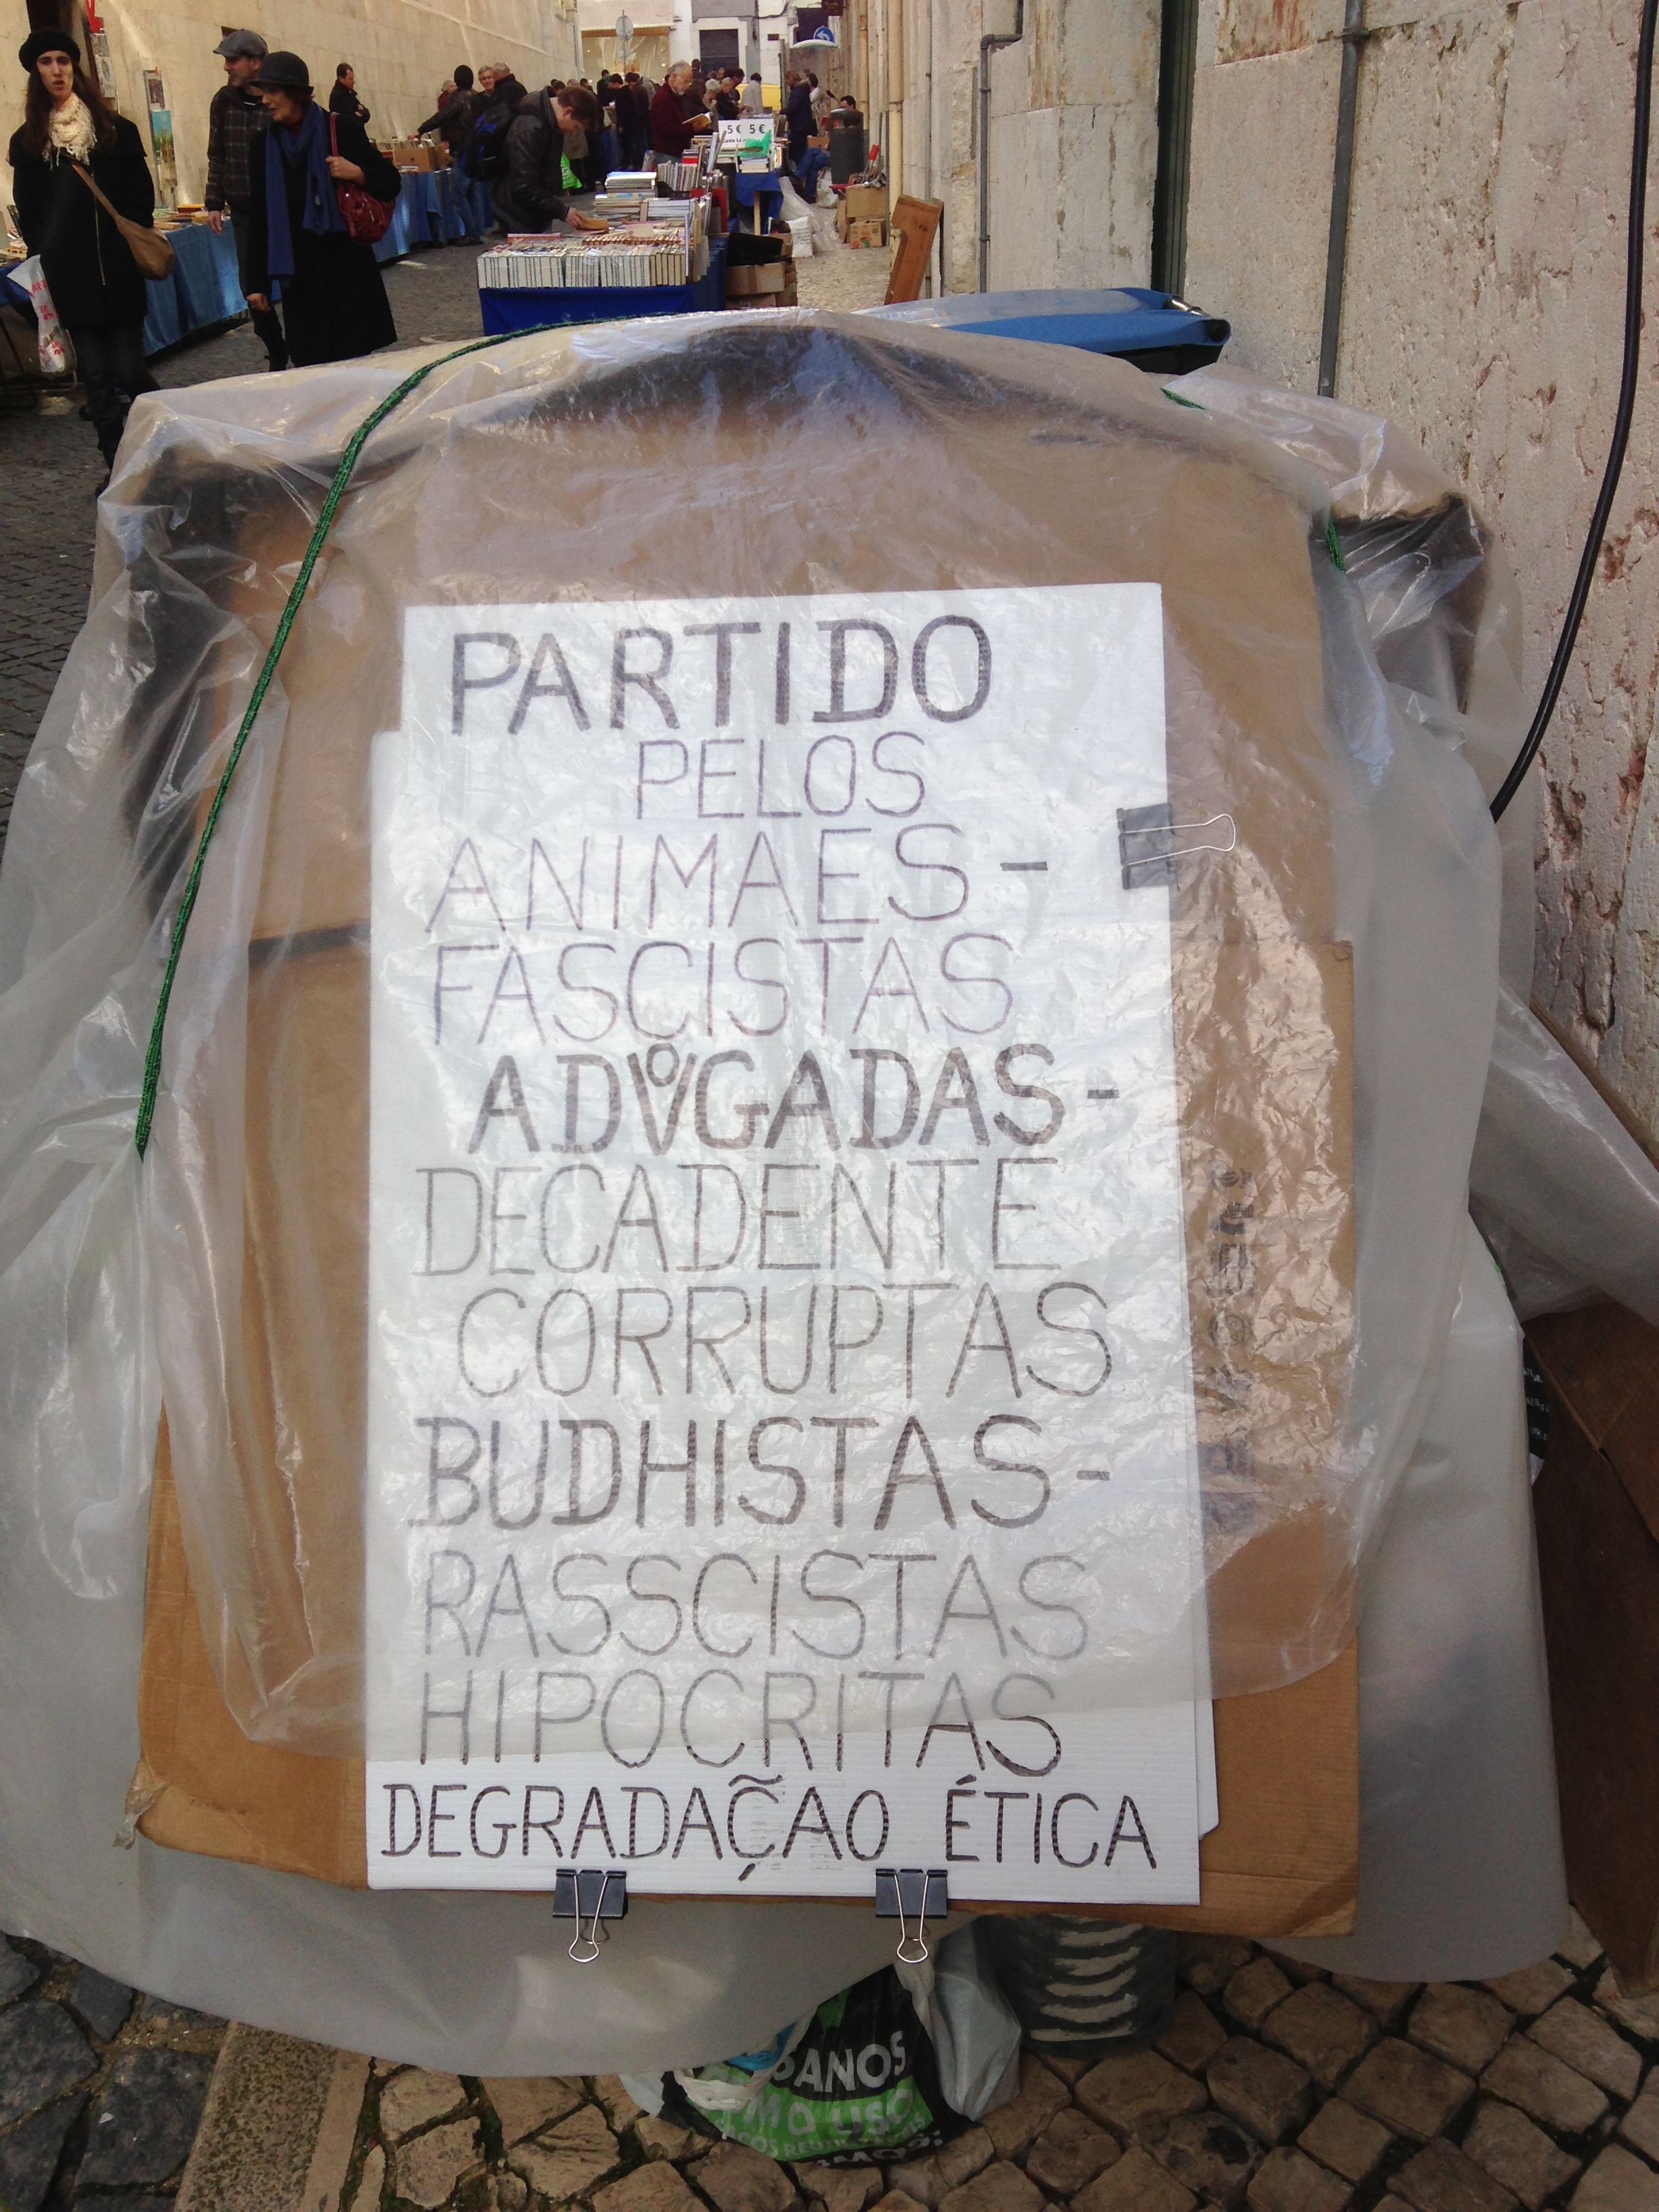 5€ 5€
PARTIDO
PELOS
ANIMAES-
FASCISTAS
ADVOGADAS-
DECADENTE
CORRUPTAS
BUDHISTAS-
RASSCISTAS
HIPOCRITAS
DEGRADAÇÃO ÉTICA